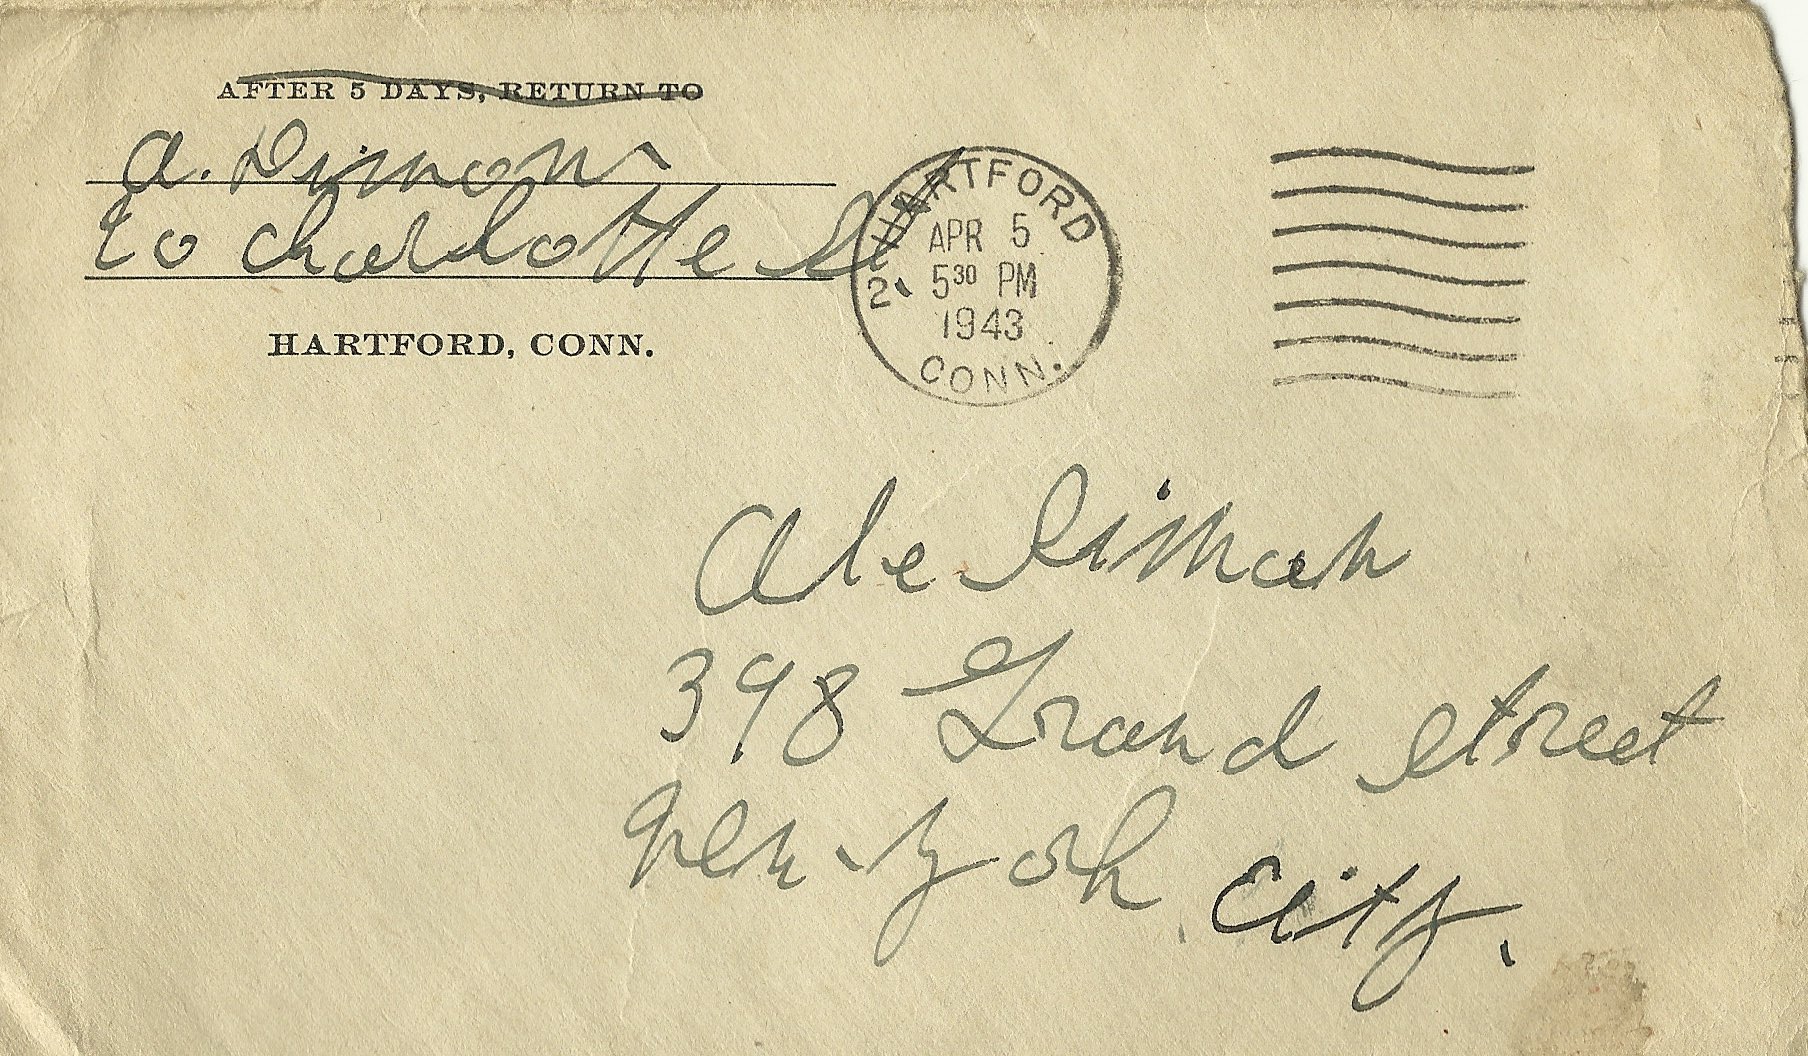 AFTER 5 DAYS, RETURN TO
A. Dimow
20 Charlotte St
HARTFORD, CONN.
HARTFORD
2
APR 5
5 30 PM
1943
CONN.
Abe
398 Grand Street
New-York City.